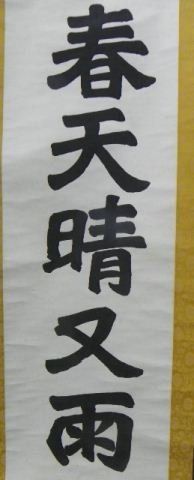 春天晴又雨